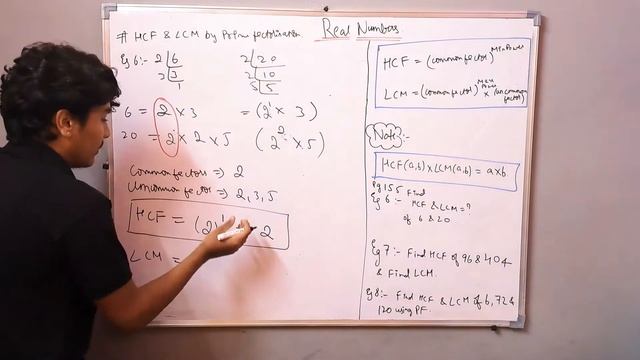 Real Numbers
# HCF & LCM by Prime factorisation
Eg 6:- 2 | 6 2 | 20
2 | 3 2 | 10
1 5 | 5
6 = 2 x 3 = (2¹ x 3)
20 = 2 x 2 x 5 (2² x 5)
Common factors => 2
Uncommon factor => 2, 3, 5
HCF = (2)¹ 2
LCM =
HCF = (common factor)^Min Power
LCM = (common factor)^Max Power x (uncommon factor)
Note:-
HCF(a,b) x LCM(a,b) = a x b
Find
Eg 6:- HCF & LCM = ?
of 6 & 20
Eg 7:- Find HCF of 96 & 404
& Find LCM.
Eg 8:- Find HCF & LCM of 6, 72 &
120 using PF.